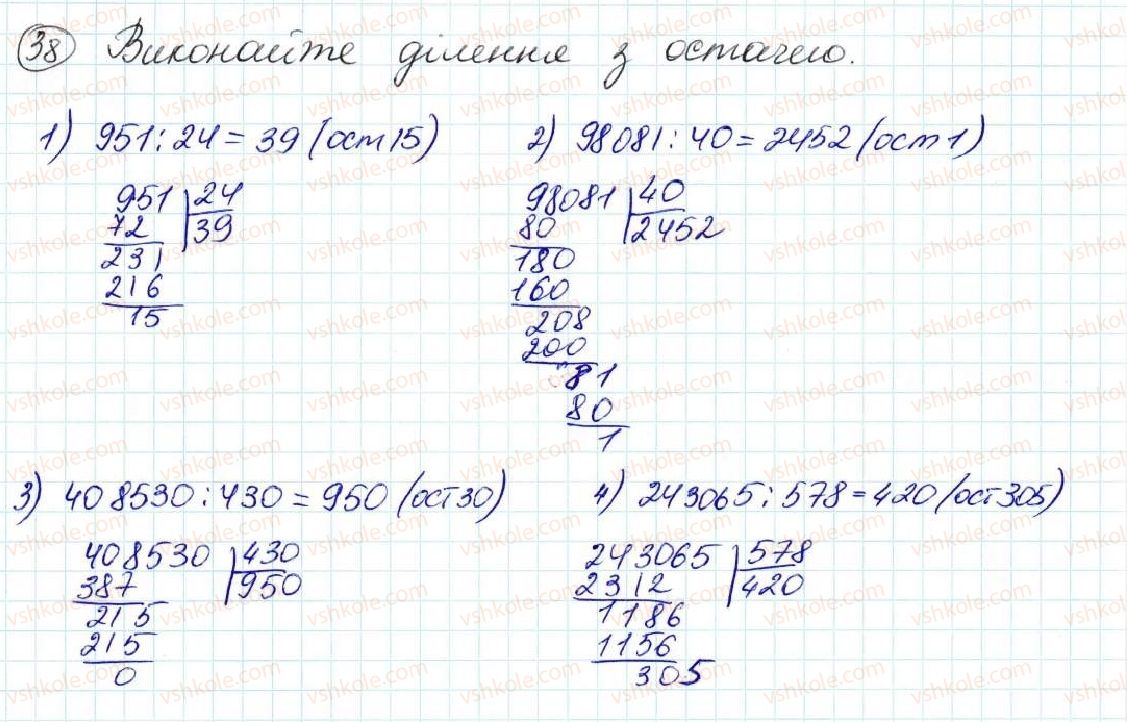 38 Виконайте ділення з остачею.
1) 951 : 24 = 39 (ост 15)
951 24
72 39
231
216
15
2) 98081 : 40 = 2452 (ост 1)
98081 40
80 2452
180
160
208
200
81
80
1
3) 408530 : 430 = 950 (ост 30)
408530 430
387 950
215
215
0
4) 243065 : 578 = 420 (ост 305)
243065 578
2312 420
1186
1156
305
vshkole.com